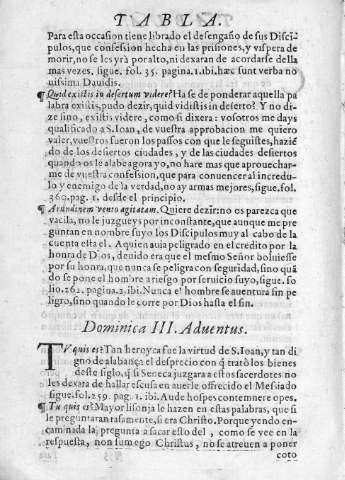 TABLA.
Para esta occasion tiene librado el desengaño de sus Disci-
pulos, que confession hecha en las prisiones, y vispera de
morir, no se les yrà por alto, ni dexaran de acordarse de lla
mas vezes, sigue. fol. 35. pagina. 1. ibi. hæc sunt verba no
uissima Dauidis.
¶ Quid existis in desertum videre? Ha se de ponderar aquella pa
labra existis, pudo dezir, quid vidistis in deserto? Y no di-
ze sino, existis videre, como si dixera: vosotros me days
qualificado a S. Ioan, de vuestra approbacion me quiero
valer, vuestros fueron los passos con que le seguistes, hazié
do de los desiertos ciudades, y de las ciudades desiertos
quando os le alabe agora yo, no hare mas que aprouechar-
me de vuestra confession, que para conuencer al incredu-
lo y enemigo de la verdad, no ay armas mejores, sigue. fol.
360. pag. 1. desde el principio.
¶ Arundinem vento agitatam. Quiere dezir: no os parezca que
vacila, no le juzgueys por inconstante, que aunque me pre
guntan en nombre suyo los Discipulos muy al cabo de la
cuenta esta el. A quien auia peligrado en el credito por la
honra de Dios, deuido era que el mesmo Señor boluiesse
por su honra, que nunca se peligra con seguridad, sino quã
do se pone el hombre a riesgo por seruicio suyo, sigue. fo-
lio. 262. pagina. 2. ibi. Nunca el hombre se auentura sin pe-
ligro, sino quando le corre por Dios hasta el fin.
Dominica III. Aduentus.
TV quis es? Tan heroyca fue la virtud de S. Ioan, y tan di
gno de alabança el desprecio con q̃ tratò los bienes
deste siglo, q̃ si Seneca juzgara a estos sacerdotes no
les dexara de hallar escusa en auerle offrecido el Mesiado
sigue. fol. 259. pag. 1. ibi. Aude hospes contemnere opes.
¶ Tu quis es? Mayor lisonja le hazen en estas palabras, que si
le preguntaran rasamente, si era Christo. Porque yendo en-
caminada la pregunta a sacar esto del, como se vee en la
respuesta, non sum ego Christus, no se atreuen a poner
coto